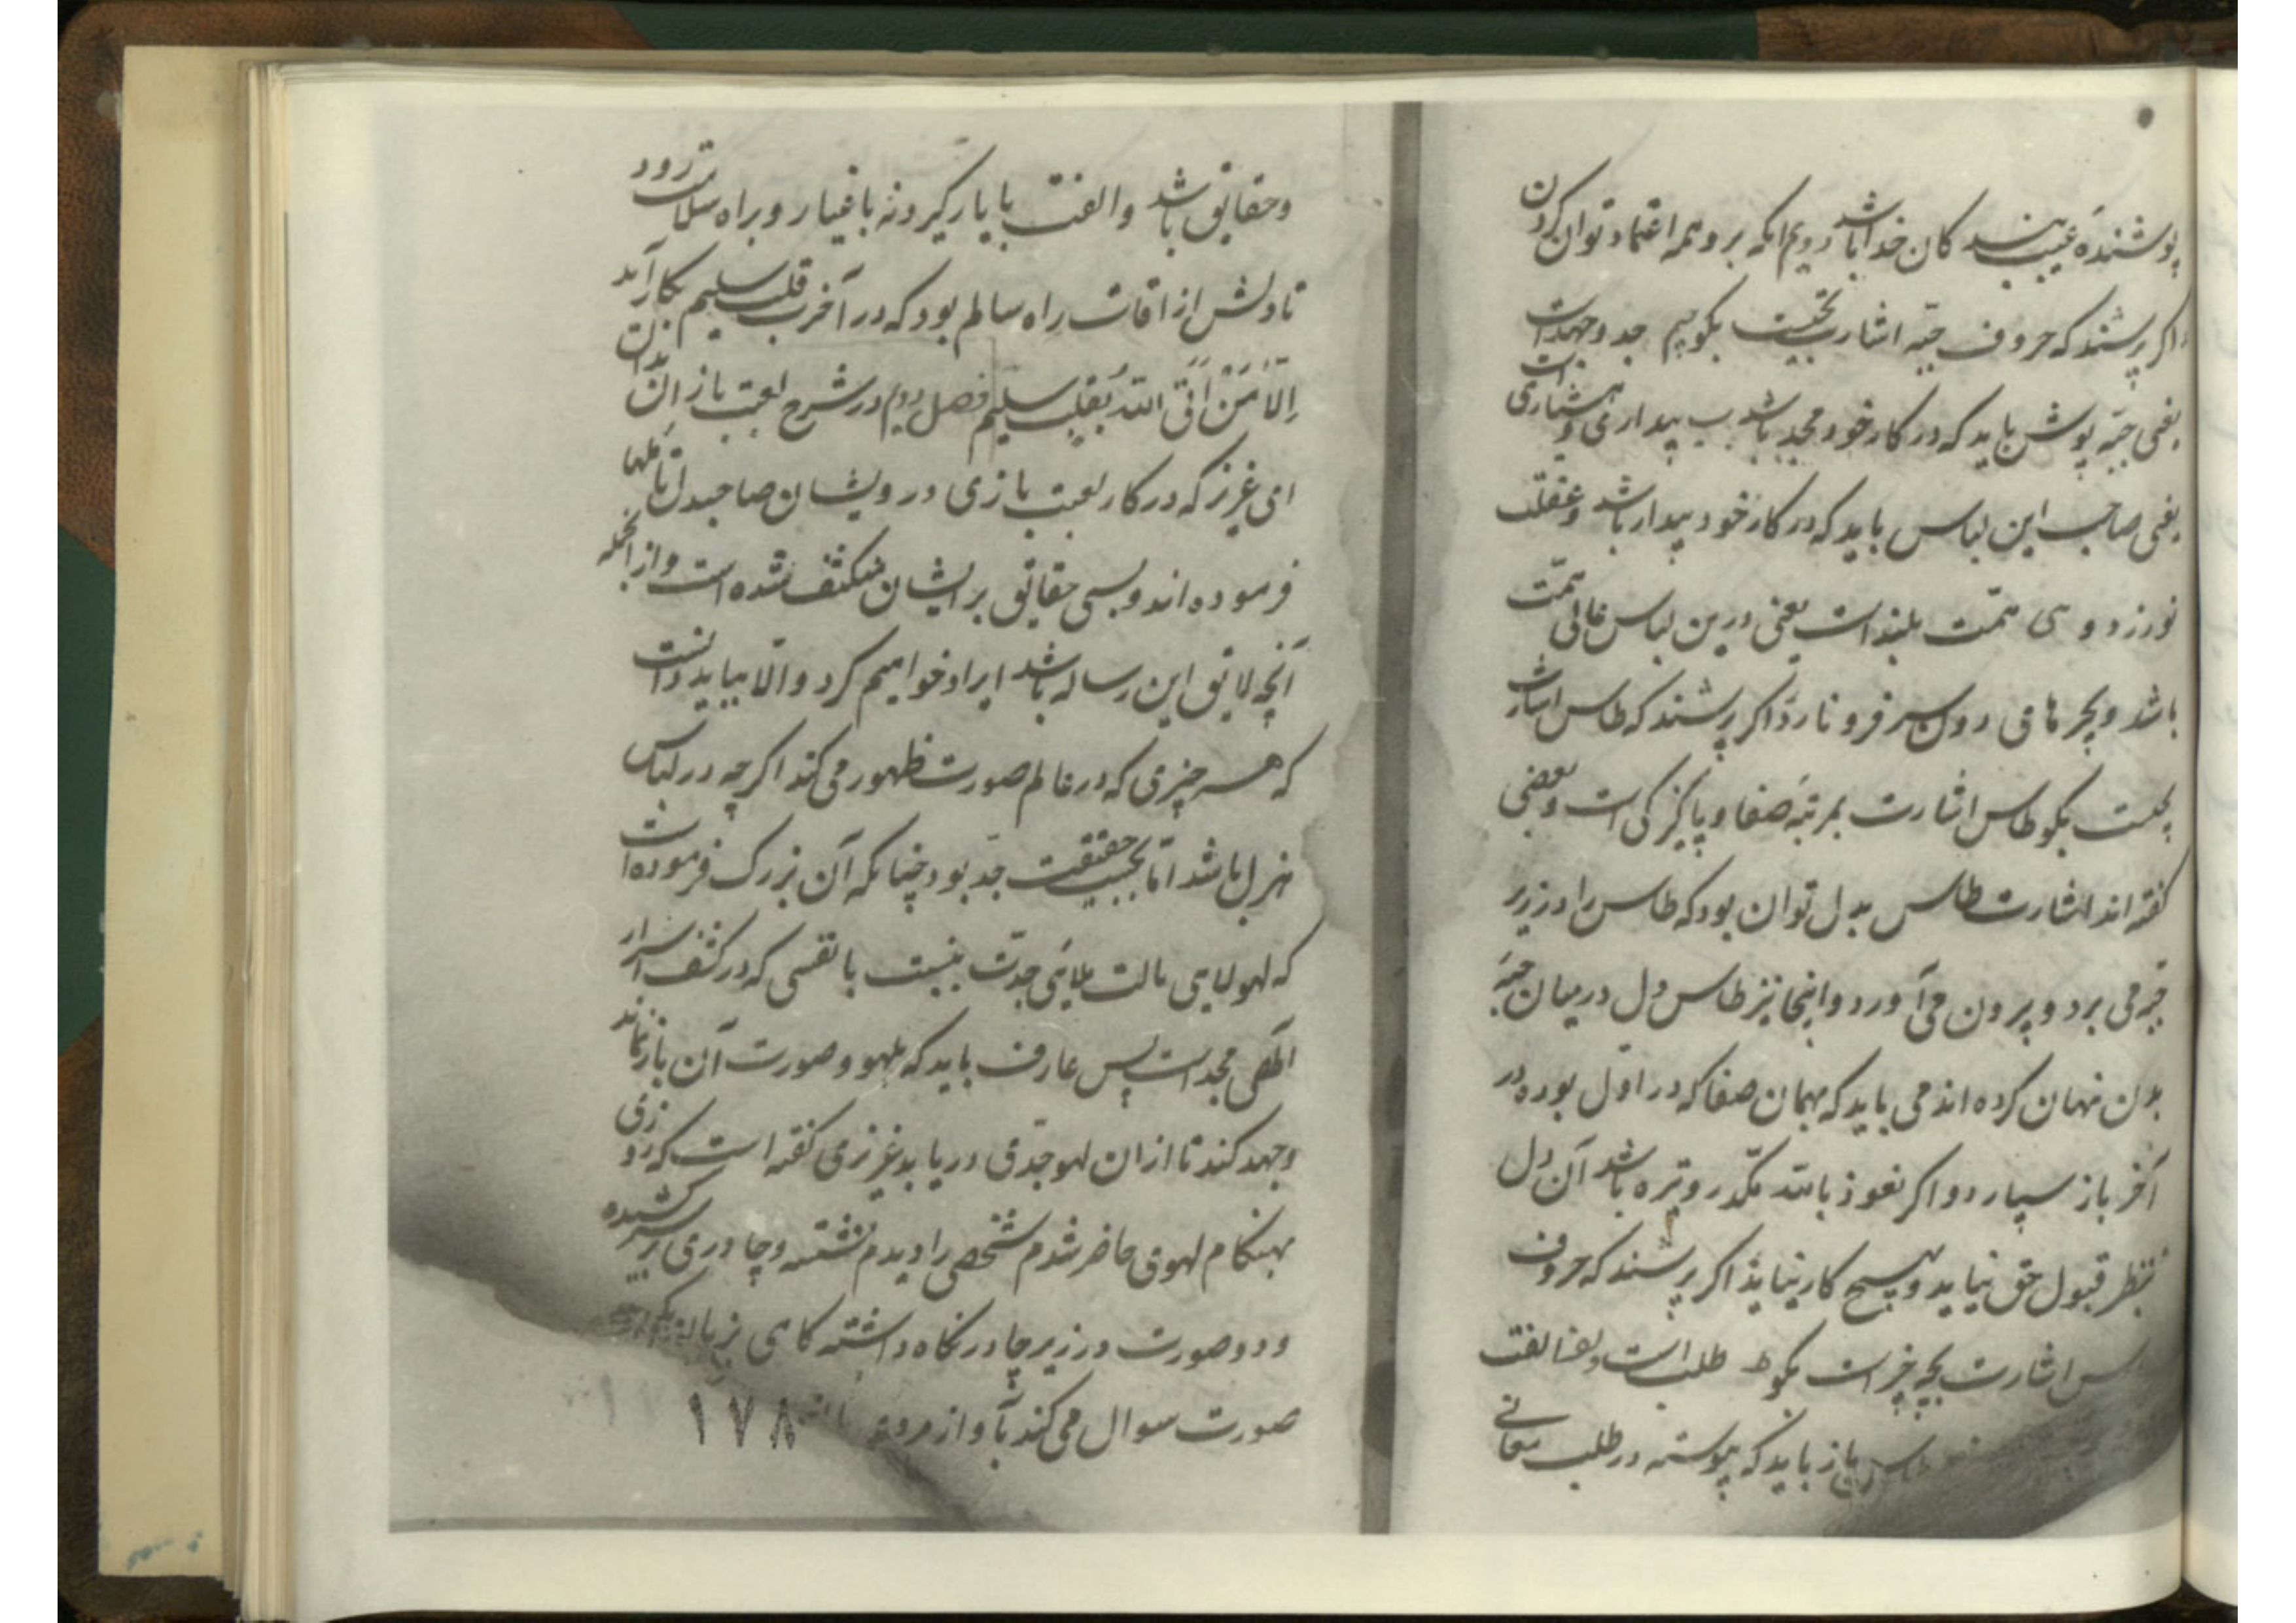 پوشندهٔ عیب بندکان خدا باشد دویم انکه برو همه اعتماد توان کردن
اکر پرسند که حروف جبه اشارت بچیست بکوییم جد و جهداست
یعنی جبه پوش باید که در کار خود مجد باشد ب بیداری و هشیاری است
یعنی صاحب این لباس باید که در کار خود بیدار باشد و غفلت
نورزد و هی همّت بلنداست یعنی درین لباس عالی همّت
باشد و بچرهای دون سر فرو نارد اکر پرسند که طاس اشارت
بچیست بکو طاس اشارت بمرتبهٔ صفا و پاکیزکی است و بعضی
کفته اند اشارت طاس بدل توان بود که طاس را در زیر
جبه می برد و بیرون می آورد و اینجا نیز طاس دل در میان جبهٔ
بدن نهان کرده اند می باید که بهمان صفا که در اول بوده در
آخر باز سپارد و اکر نعوذ بالله مکدّر و تیره باشد آن دل
بنظر قبول حق نیاید و هیچ کار نیاید اکر پرسند که حروف
اشارت بچه چیزاست بکو ط طلب است و لفت
باز باید که پیوسته در طلب معانی
و حقایق باشد و الفت با یار کیرد نه با غیار و براه سلامت رود
تا دلش از افات راه سالم بود که در آخرت قلب سلیم بکار آید
اِلّا مَنْ اَتَی اللّه بِقَلبٍ سلیم فصل دویم در شرح لعبت بازان بدان
ای عزیز که در کار لعبت بازی درویشان صاحبدل تاملها
فرموده اند و بسی حقایق بر ایشان منکشف شده است و از انجمله
آنچه لایق این رساله باشد ایراد خواهیم کرد و الا بباید دانست
که هر چیزی که در عالم صورت ظهور می کند اکرچه در لباس
هزل باشد امّا بحسب حقیقت جدّ بود چنانکه آن بزرک فرموده است
که لهو لاهی جدّت بنسبت با نفسی که در کشف اسرار
الهی مجداست پس عارف باید که بلهو و صورت آن بازنماند
و جهد کند تا ازان لهو جدّی دریابد عزیزی کفته است که روزی
بهنکام لهوی حاضر شدم شخصی را دیدم نشسته و چادری بر سر کشیده
و دو صورت در زیر چادر نکاه داشته کاهی بزبان
صورت سوال می کند بآواز مردی
۱۷۸